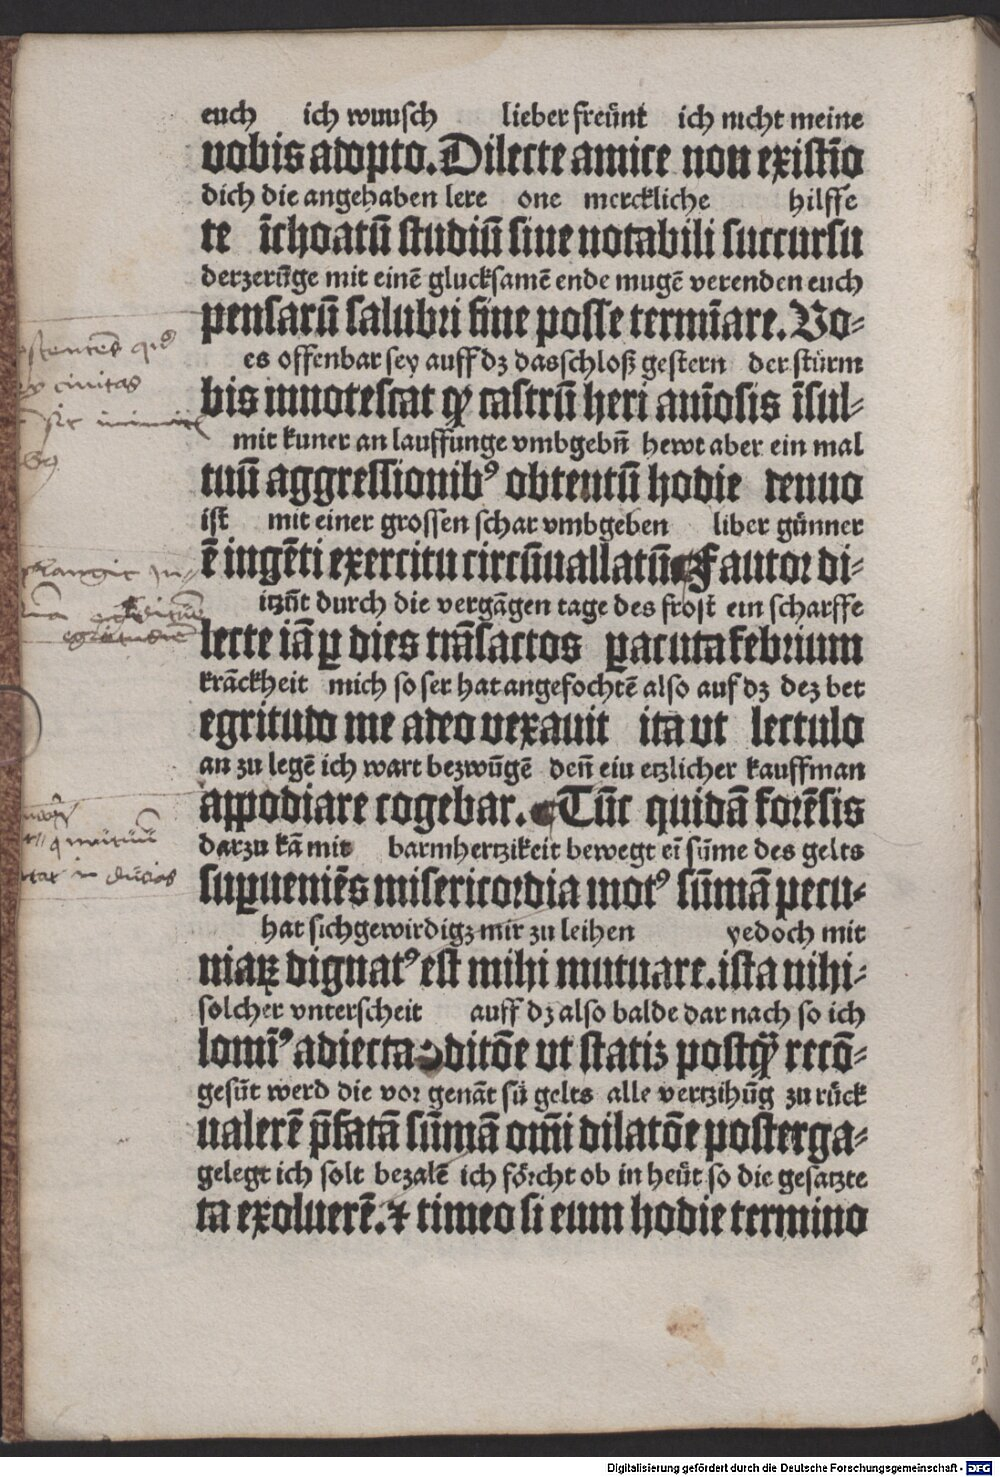 euch ich wuusch lieber freünt ich nicht meine
uobis adopto. Dilecte amice non existīo
dich die angehaben lere one merckliche hilffe
te īchoatū studiū sine notabili succursu
derzerūge mit einē glucksamē ende mugē verenden euch
pensarū salubri fine posse termīare. Vo-
es offenbar sey auff dz dasschloß gestern der stürm
bis innotescat ꝙ castrū heri anīosis īsul-
mit kuner an lauffunge vmbgebn̄ hewt aber ein mal
tuū aggressionibꝰ obtentū hodie denuo
ist mit einer grossen schar vmbgeben liber günner
ē ingēti exercitu circūuallatū Fautor di-
itzūt durch die vergāgen tage des frost ein scharffe
lecte iā ꝑ dies trāsactos ꝑacuta febrium
krāckheit mich so ser hat angefochtē also auf dz dez bet
egritudo me adeo vexauit ita ut lectulo
an zu legē ich wart bezwūgē den̄ eiu etzlicher kauffman
appodiare cogebar. Tūc quidā forēsis
darzu kā mit barmhertzikeit bewegt eī sūme des gelts
suꝑueniēs misericordia motꝰ sūmā pecu-
hat sichgewirdigz mir zu leihen yedoch mit
niaꝝ dignatꝰ est mihi mutuare. ista nihi-
solcher vnterscheit auff dz also balde dar nach so ich
lomīꝰ adiecta ꝯditōe ut statiz postꝙ̄ recō-
gesūt werd die vor genāt sū gelts alle vertzihūg zu rück
ualerē p̄fatā sūmā om̄i dilatōe posterga-
gelegt ich solt bezalē ich förcht ob in heüt so die gesatzte
ta exoluerē. ⁊ timeo si eum hodie termino
civitas
Digitalisierung gefördert durch die Deutsche Forschungsgemeinschaft - DFG